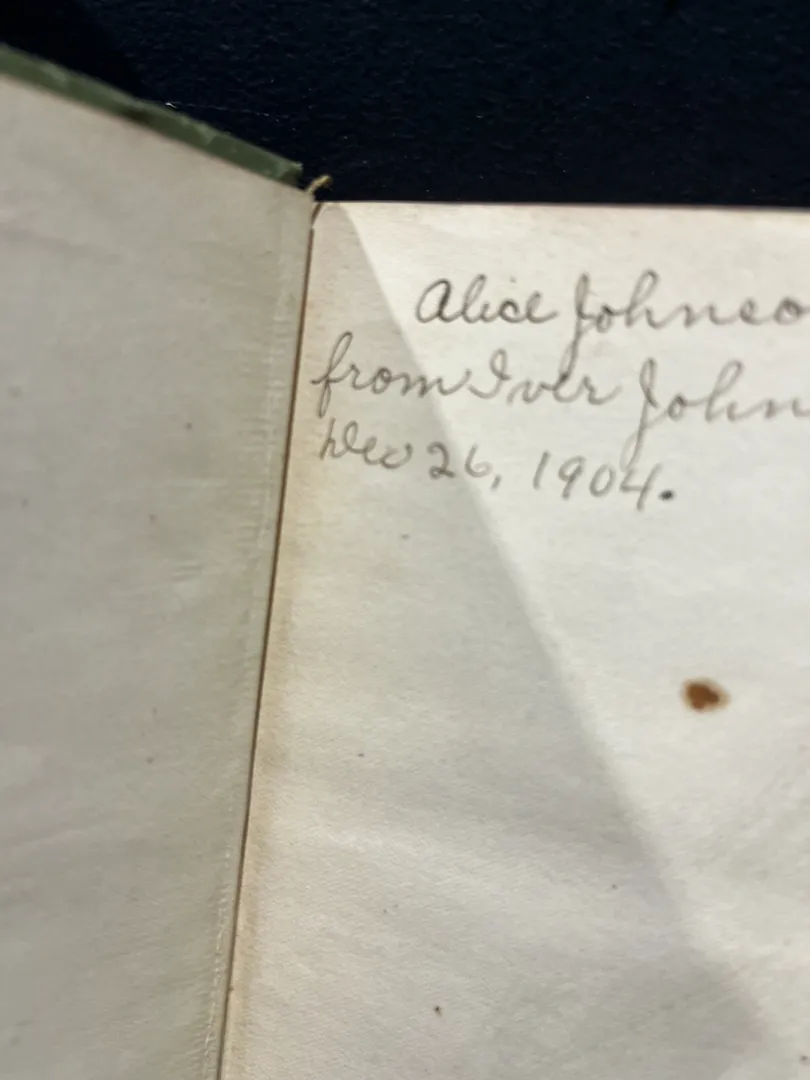 Alice Johnso
from Iver John
Dec 26, 1904.